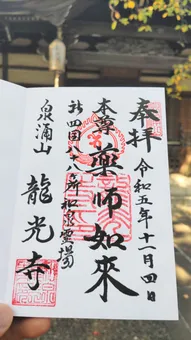 奉拝
令和五年十一月四日
本尊
薬師如来
新四国八十八ヶ所
泉涌山
龍光寺